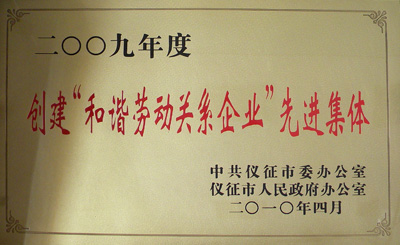 二〇〇九年度
创建“和谐劳动关系企业”先进集体
中共仪征市委办公室
仪征市人民政府办公室
二〇一〇年四月